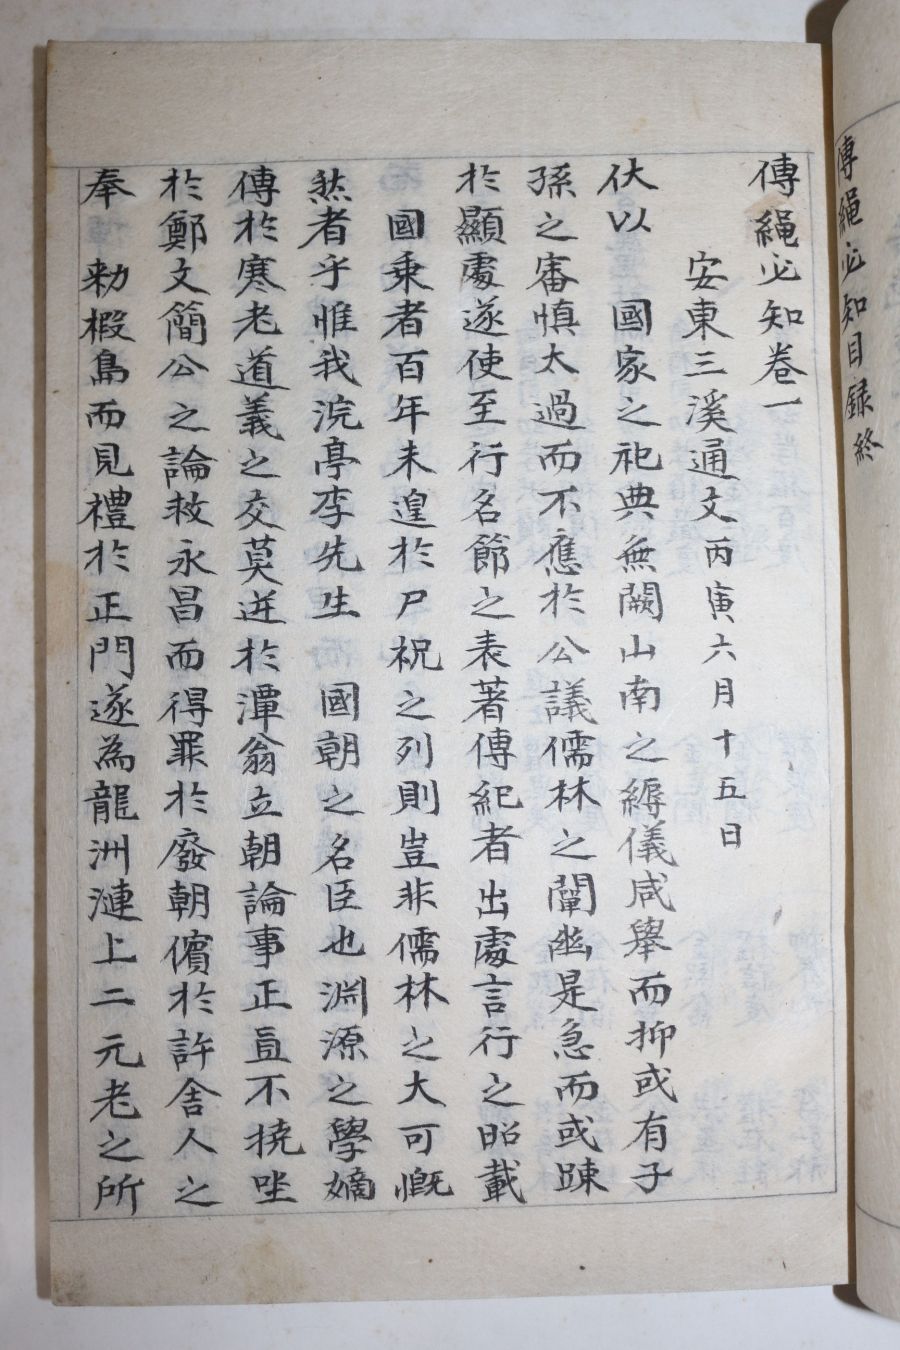 傳繩必知目録終
傳繩必知卷一
安東三溪通文丙寅六月十五日
伏以 國家之祀典無闕山南之縟儀咸舉而抑或有子
孫之審慎太過而不應於公議儒林之闡幽是急而或踈
於顯處遂使至行名節之表著傳紀者出處言行之昭載
國乘者百年未遑於尸祝之列則豈非儒林之大可慨
然者乎惟我浣亭李先生 國朝之名臣也淵源之學嫡
傳於寒老道義之交莫逆於潭翁立朝論事正直不撓坐
於鄭文簡公之論救永昌而得罪於廢朝儐於許舍人之
奉 勅椵島而見禮於正門遂為龍洲漣上二元老之所